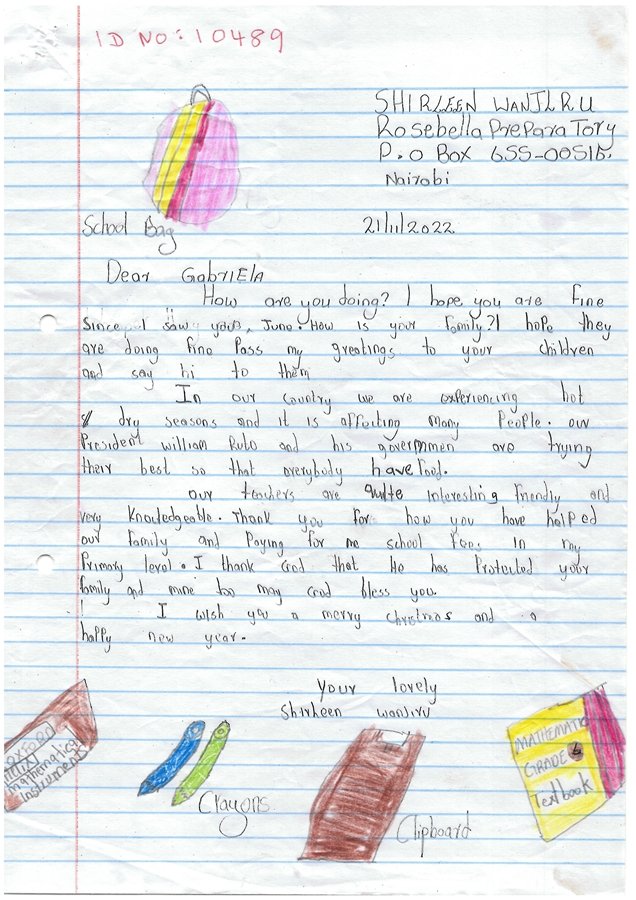 ID NO: 10489
SHIRLEEN WANJIRU
Rosebella Preparatory
P.O Box 655-00515.
Nairobi
School Bag
21/11/2022
Dear GABRIELA
How are you doing? I hope you are fine
Since I saw your, June. How is your family? I hope they
are doing fine Pass my greetings to your children
and say hi to them
In our country we are experiencing hot
& dry seasons and it is affecting many People. our
President william Ruto and his governmen are trying
their best so that everybody have food.
our teachers are quite interesting friendly and
very knowledgeable. Thank you for how you have helped
our family and Paying for me school Fees. In my
Primary level. I thank God that He has Protected your
family and mine too may God bless you.
I wish you a merry christmas and a
happy new year.
Your lovely
Shirleen wanjiru
OXFORD
Mathematical
Instruments
Crayons
Clipboard
MATHEMATIC
GRADE 6
Textbook